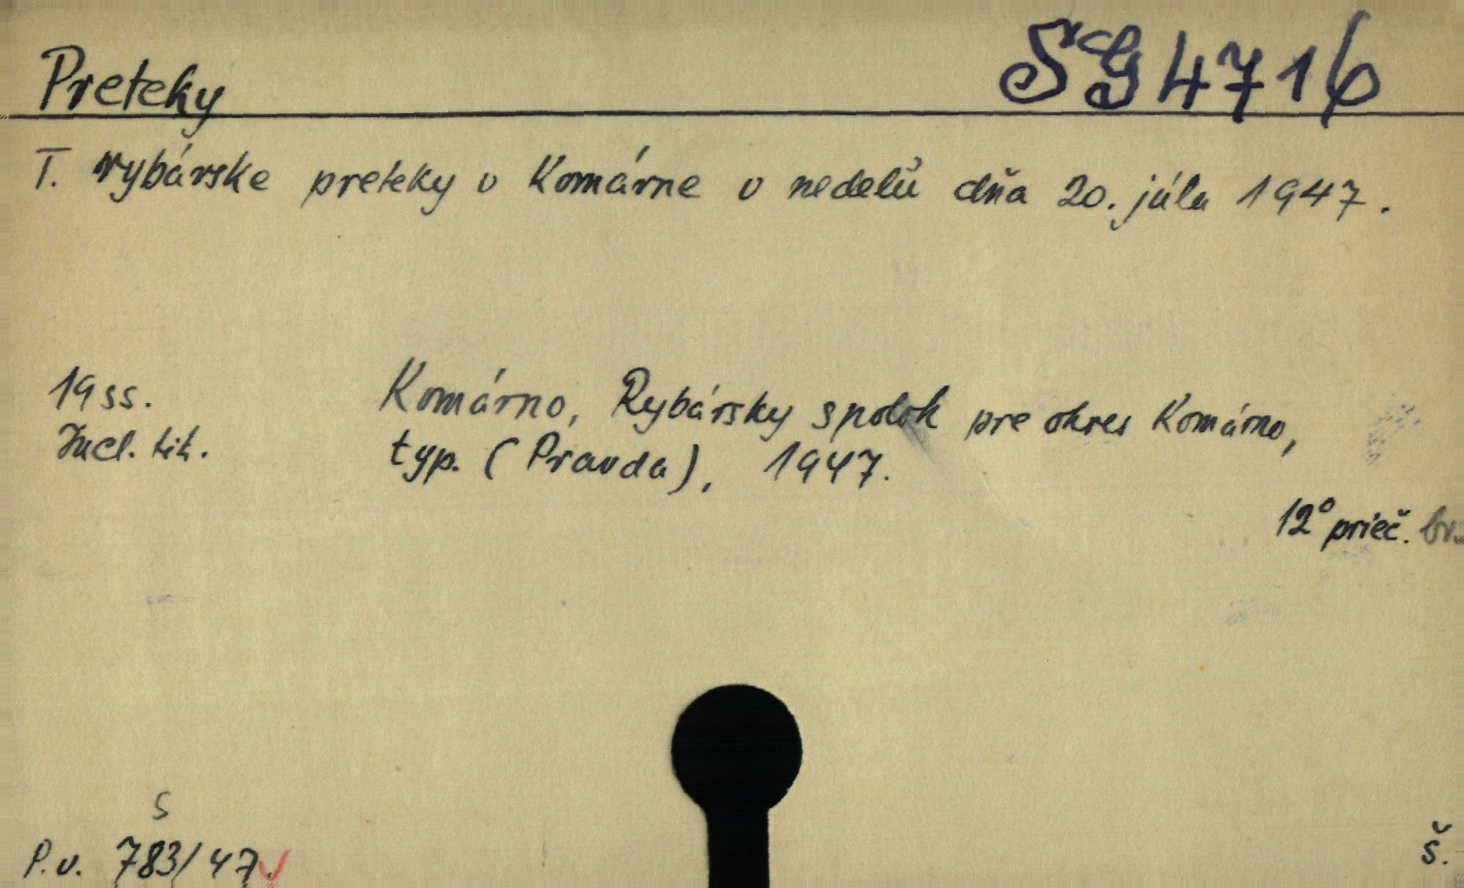 Preteky SG 4716
I. rybárske preteky v Komárne v nedeľu dňa 20. júla 1947.
19 ss. Komárno, Rybársky spolok pre okres Komárno,
Incl. tit. typ. (Pravda), 1947.
12° prieč. br.
S
P.v. 783/47 ✓ š.